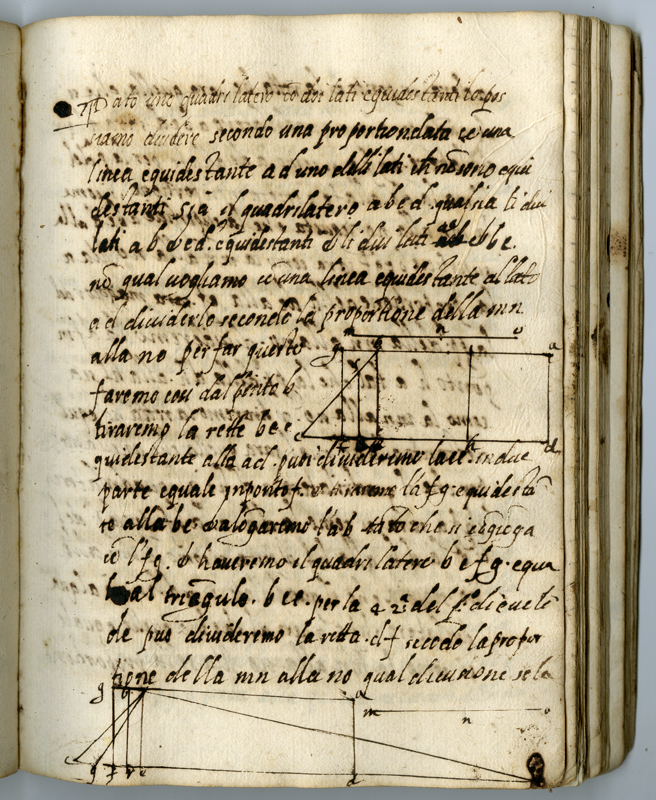 7 Dato uno quadrilatero cō doi lati equidestanti lo pos
siamo dividere secondo una proportion data cō una
linea equidestante ad uno delli lati ch nō sono equi
destanti sia il quadrilatero abcd qual sia li dui
lati ab & cd equidestanti & li dui lati ad & bc.
nō qual vogliamo cō una linea equidestante al lato
ad dividerlo secondo la proportione della mn
alla no per far questo
m n o
g b a
faremo cosi dal ponto b
tiraremo la retta be e
c d
quidestante alla ad. puoi divideremo la ec in due
parte equale in ponto f. & tiraremo la fg equidestā
te alla be & alōgaremo l'ab tāto che si cōgiōga
cō l'fg. & haveremo il quadrilatero befg equa
al triāgulo bec. per la 42ª del pº di eucli
de puo divideremo la retta df secōdo la propor
tione della mn alla no qual divisione se la
g a
m n o
c f d